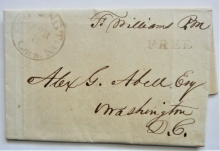 Williams
FREE
Alex G. Abell, Esq
Washington
D.C.